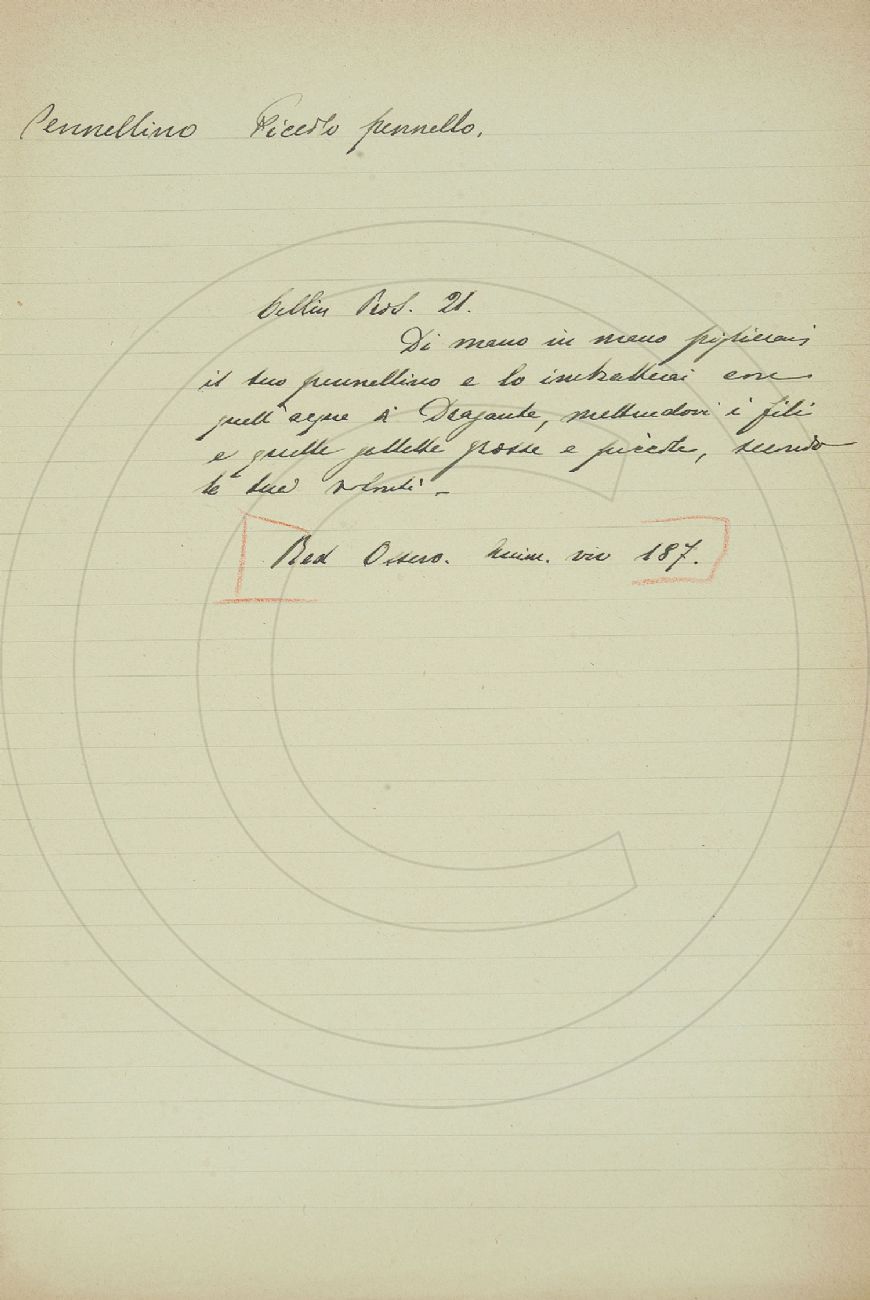 Pennellino Piccolo pennello.
Cellin Pros. 21.
Di mano in mano piglierai
il tuo pennellino e lo intratterai con
quell'acqua di Dragante, mettendovi i fili
e quelle pallette grosse e piccole, secondo
le tue volontà -
Red Osserv. Anim. viv 187.